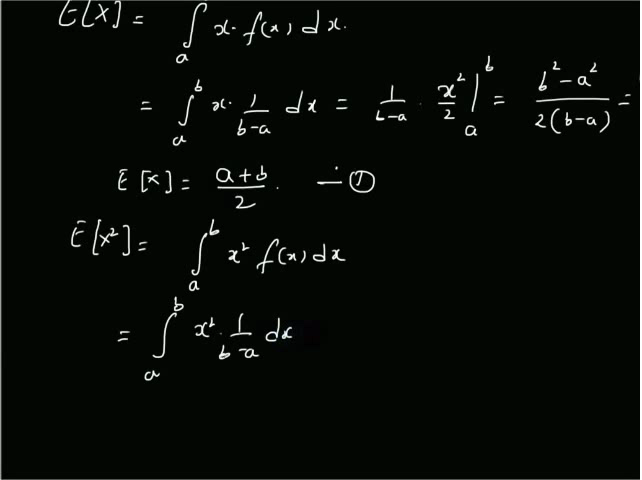 E[X] = ∫ₐ x · f(x) dx.
= ∫ₐᵇ x · 1/(b-a) dx = 1/(b-a) · x²/2 |ₐᵇ = (b² - a²)/(2(b-a)) =
E[X] = (a+b)/2 . — ①
E[X²] = ∫ₐᵇ x² f(x) dx
= ∫ₐᵇ x² · 1/(b-a) dx